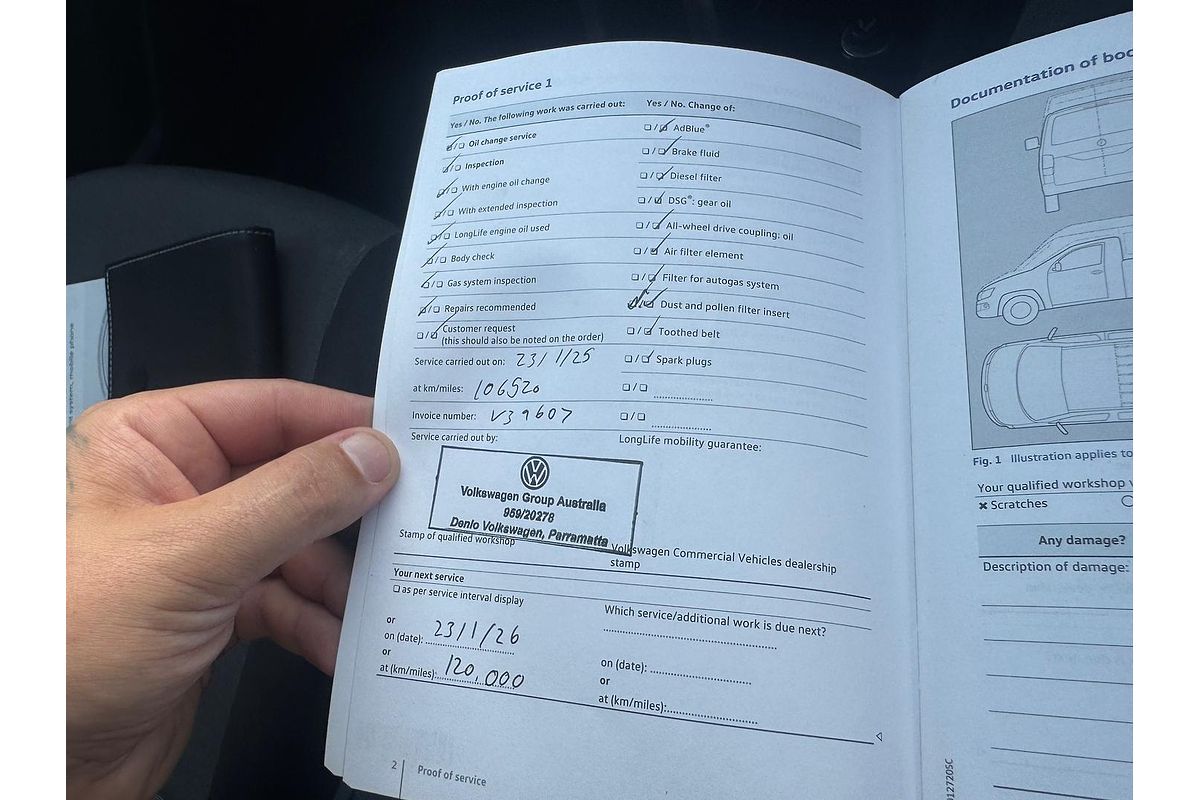 Proof of service 1
Yes / No. The following work was carried out:
☑/☐ Oil change service
☑/☐ Inspection
☑/☐ With engine oil change
☑/☐ With extended inspection
☑/☐ LongLife engine oil used
☑/☐ Body check
☑/☐ Gas system inspection
☑/☐ Repairs recommended
☐/☑ Customer request
(this should also be noted on the order)
Service carried out on: 23/1/25
at km/miles: 106520
Invoice number: V39607
Service carried out by:
Volkswagen Group Australia
969/20278
Denlo Volkswagen, Parramatta
Stamp of qualified workshop
Yes / No. Change of:
☐/☑ AdBlue®
☐/☑ Brake fluid
☐/☑ Diesel filter
☐/☑ DSG®: gear oil
☐/☑ All-wheel drive coupling: oil
☐/☑ Air filter element
☐/☑ Filter for autogas system
☑/☑ Dust and pollen filter insert
☐/☑ Toothed belt
☐/☑ Spark plugs
☐/☐
☐/☐
LongLife mobility guarantee:
Volkswagen Commercial Vehicles dealership
stamp
Your next service
☐ as per service interval display
or
on (date): 23/1/26
or
at (km/miles): 120,000
Which service/additional work is due next?
on (date):
or
at (km/miles):
2 Proof of service
Documentation of
Fig. 1 Illustration applies to
Your qualified workshop
✖ Scratches
Any damage?
Description of damage:
system, mobile phone